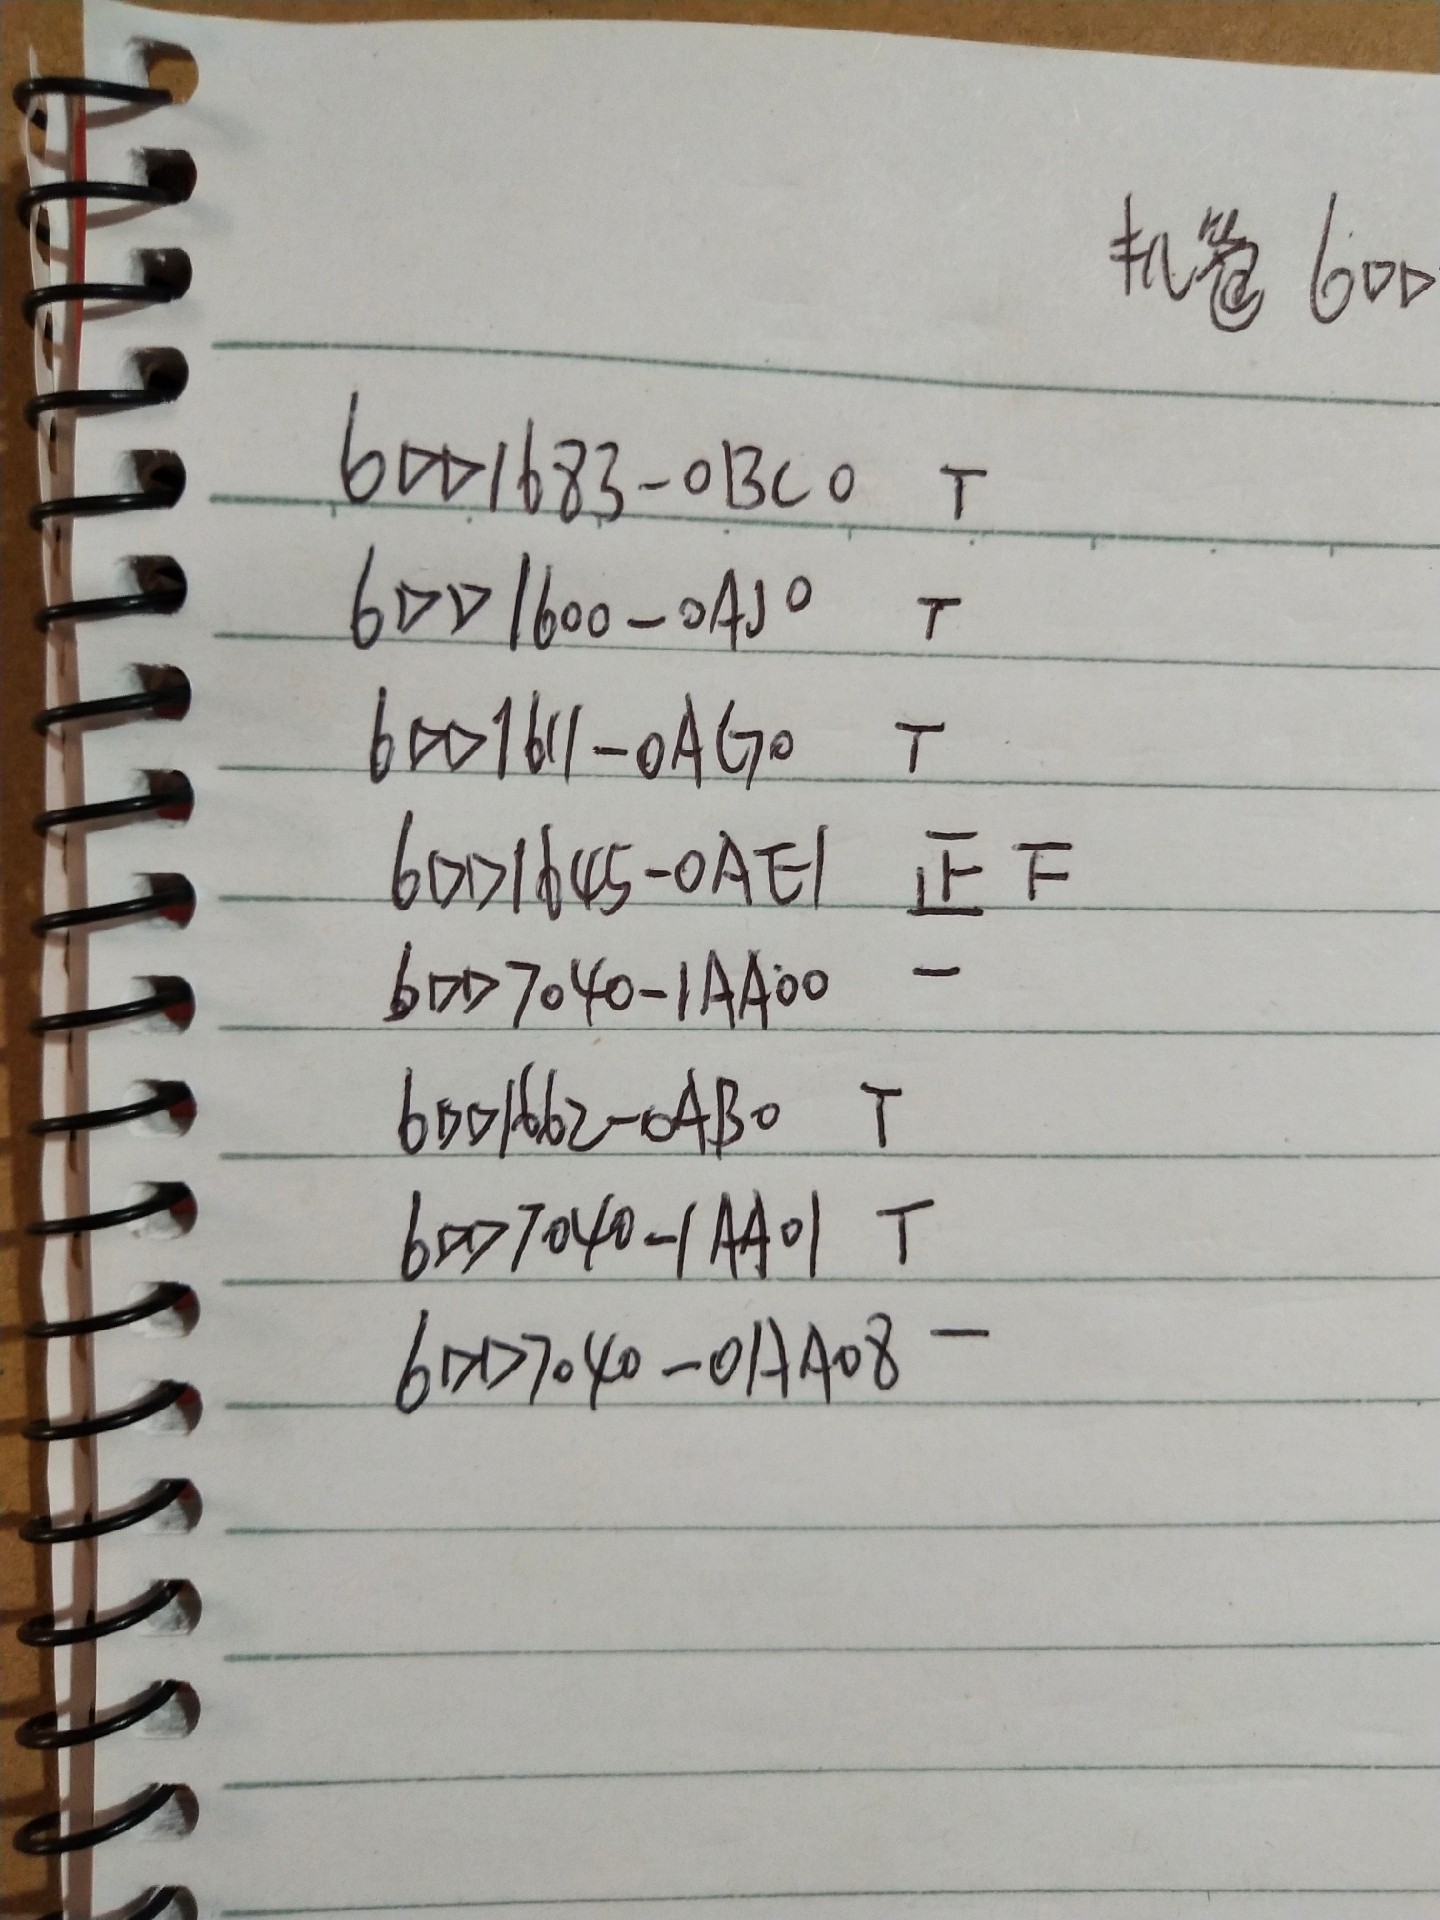 机卷 6DD
6DD1683-0BC0 T
6DD1600-0AJ0 T
6DD1611-0AG0 T
6DD1645-0AE1 正 F
6DD7040-1AA00 一
6DD1662-0AB0 T
6DD7040-1AA01 T
6DD7040-01AA08 一